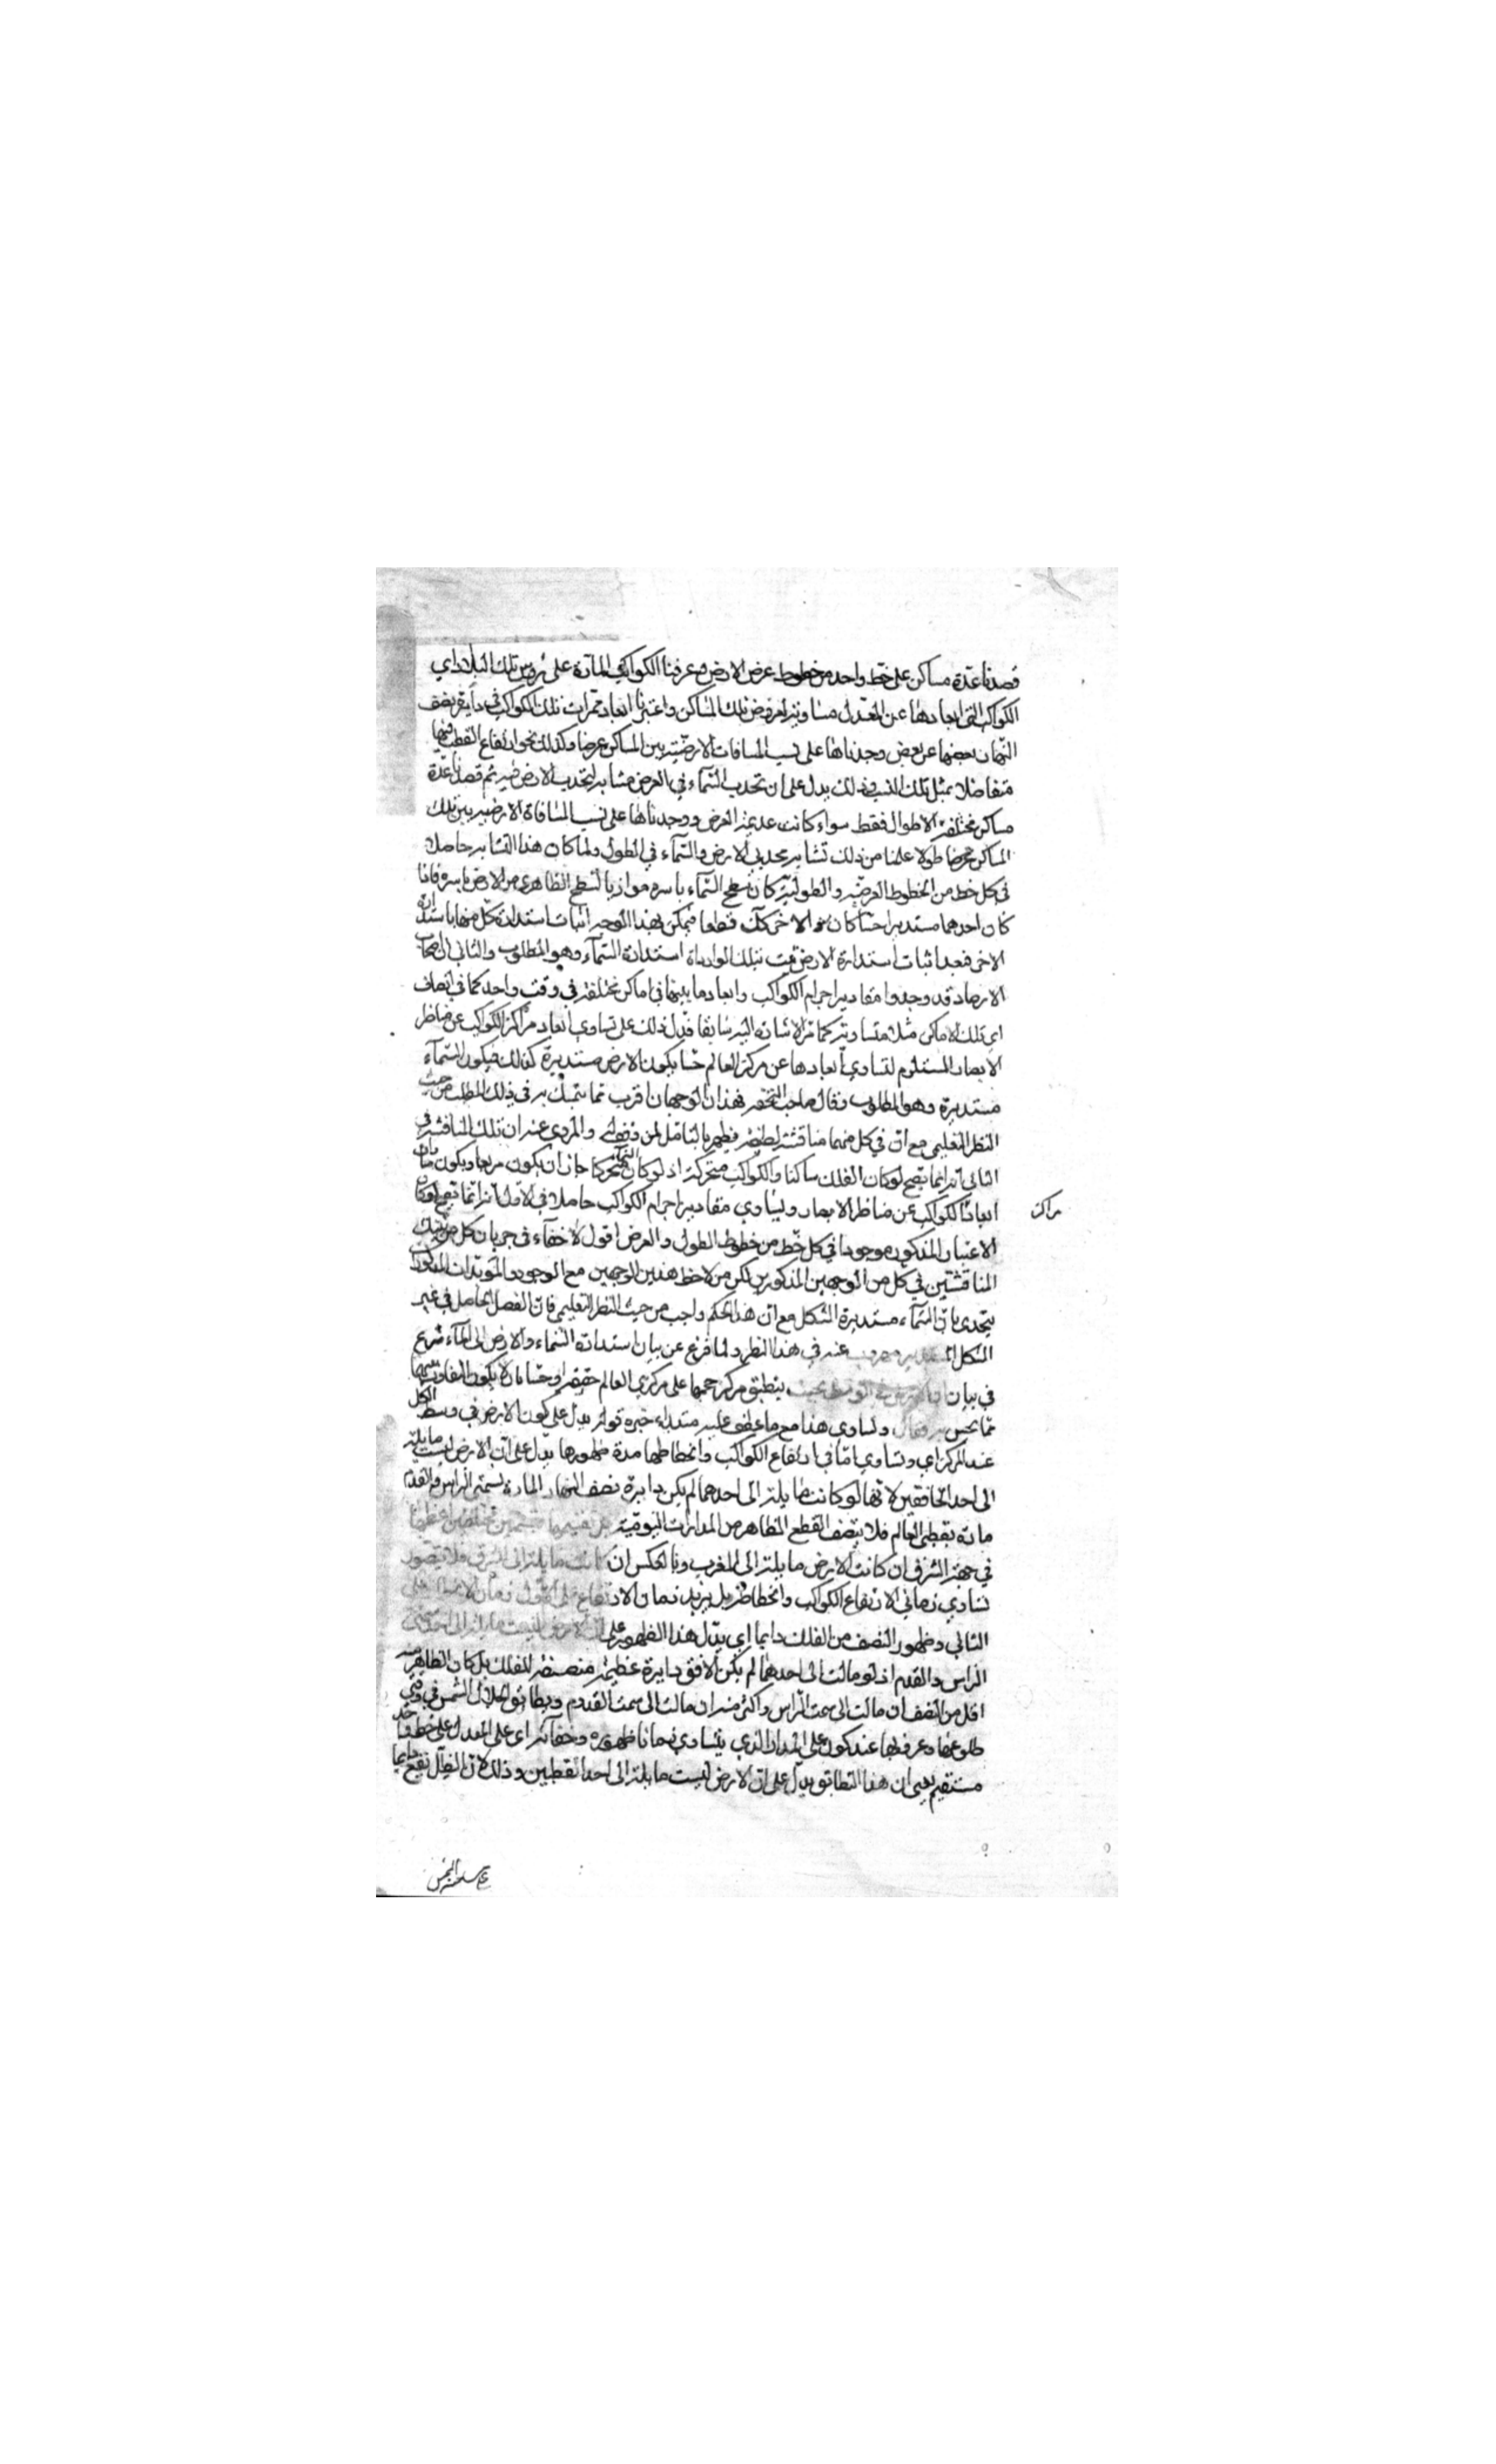 قصدنا عدة مساكن على خط واحد من خطوط عرض الارض وعرفنا الكواكب المارة على رؤس تلك البلاد اي
الكواكب التي ابعادها عن المعدل مساوية لعروض تلك المساكن واعتبرنا ابعاد ممرات تلك الكواكب في دايرة نصف
النهار بعضها عن بعض وجدناها على نسب المسافات الارضية بين المساكن عرضا وكذلك نجد ارتفاع القطب فيها
متفاضلا بمثل تلك النسب وذلك يدل على ان تحدب السماء في العرض مشابه لتحدب الارض فيه ثم قصدنا عدة
مساكن مختلفة الاطوال فقط سواء كانت عديمة العرض ووجدناها على نسب المسافاة الارضية بين تلك
المساكن طولا علمنا من ذلك تشابه محدبي الارض والسماء في الطول ولما كان هذا التشابه حاصلا
في كل خط من الخطوط العرضية والطولية كان سطح السماء باسره موازيا لسطح الظاهر من الارض باسره فاذا
كان احدهما مستديرا حسا كان الاخر كك قطعا فيمكن بهذا الوجه اثبات استدارة كل منهما باستدارة
الاخر فبعد اثبات استدارة الارض يثبت بتلك الموازاة استدارة السماء وهو المطلوب والثاني ان اصحاب
الارصاد قد وجدوا مقادير اجرام الكواكب وابعاد ما بينها في اماكن مختلفة في وقت واحد كما في انصاف
اي تلك الاماكن مثلا متساوية كما مر الاشارة اليه سابقا فدل ذلك على تساوي ابعاد مراكز الكواكب عن مناظر
الابصار المستلزم لتساوي ابعادها عن مركز العالم حسا بكون الارض مستديرة كذلك فيكون السماء
مستديرة وهو المطلوب وقال صاحب التحفة فهذان الوجهان اقرب مما يتمسك به في ذلك المطلب من حيث
النظر التعليمي مع ان في كل منهما مناقشة لطيفة يظهر بالتامل لمن وفق له والمروي عنه ان تلك المناقشة في
الثاني انه انما يصح لو كان الفلك ساكنا والكواكب متحركة اذ لو كان الفلك متحركا جاز ان يكون مربعا ويكون تساوي
ابعاد الكواكب عن مناظر الابصار وتساوي مقادير اجرام الكواكب حاصلا في الاول انه انما يصح لو كان
مراكز
الاعتبار المذكور موجودا في كل خط من خطوط الطول والعرض اقول لا خفاء في جريان كل من تينك
المناقشتين في كل من الوجهين المذكورين لكن من لاحظ هذين الوجهين مع الوجوه والمؤيدات المذكورات
يتحدس بان السماء مستديرة الشكل مع ان هذا الحكم واجب من حيث النظر التعليمي فان الفصل الحاصل في غير
الشكل المستدير مهروب عنه في هذا النظر ولما فرغ عن بيان استدارة السماء والارض الى الماء شرع
في بيان ان الارض في الوسط بحيث ينطبق مركز حجمها على مركزي العالم حقيقة او حسا بان لا يكون التفاوت بينهما
مما يحس به فقال وتساوي هذا مع ما عطف عليه مبتداء خبره قوله يدل على كون الارض في وسط الكل
عند المركز اي وتساوي زماني ارتفاع الكواكب وانحطاطها مدة ظهورها يدل على ان الارض ليست مايلة
الى احد الخافقين لانها لو كانت مايلة الى احدهما لم يكن دايرة نصف النهار المارة بسمتي الراس والقدم
مارة بقطبي العالم فلا ينصف القطع الظاهر من المدارات اليومية بل تقسمها بقسمين مختلفين اعظمهما
في جهة الشرق ان كانت الارض مايلة الى المغرب وبالعكس ان كانت مايلة الى الشرق فلا يتصور
تساوي زماني الارتفاع الكواكب وانحطاطه بل يزيد زمان الارتفاع على الاول وزمان الانحطاط على
الثاني وظهور النصف من الفلك دايما اي يدل هذا الظهور على ان الارض ليست مايلة الى احد سمتي
الراس والقدم اذ لو مالت الى احدهما لم يكن الافق دايرة عظيمة منصفة للفلك بل كان الظاهر منه
اقل من النصف ان مالت الى سمت الراس واكثر منه ان مالت الى سمت القدم وتطابق اظلال الشمس في وقتي
طلوعها وغروبها عند كونها على المدار الذي يتساوى زمانا ظهوره وخفائه اي على المعدل على خط واحد
مستقيم يعني ان هذا التطابق يدل على ان الارض ليست مايلة الى احد القطبين وذلك لان الظل تقع دايما